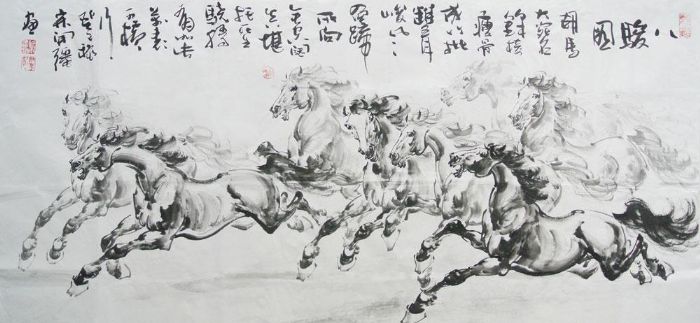 八駿图
胡馬
大宛名
鋒棱
瘦骨
成竹批
雙耳
峻風入
四蹄
所向
無空闊
真堪
託死生
驍騰
有如此
萬里
可橫
行
畫